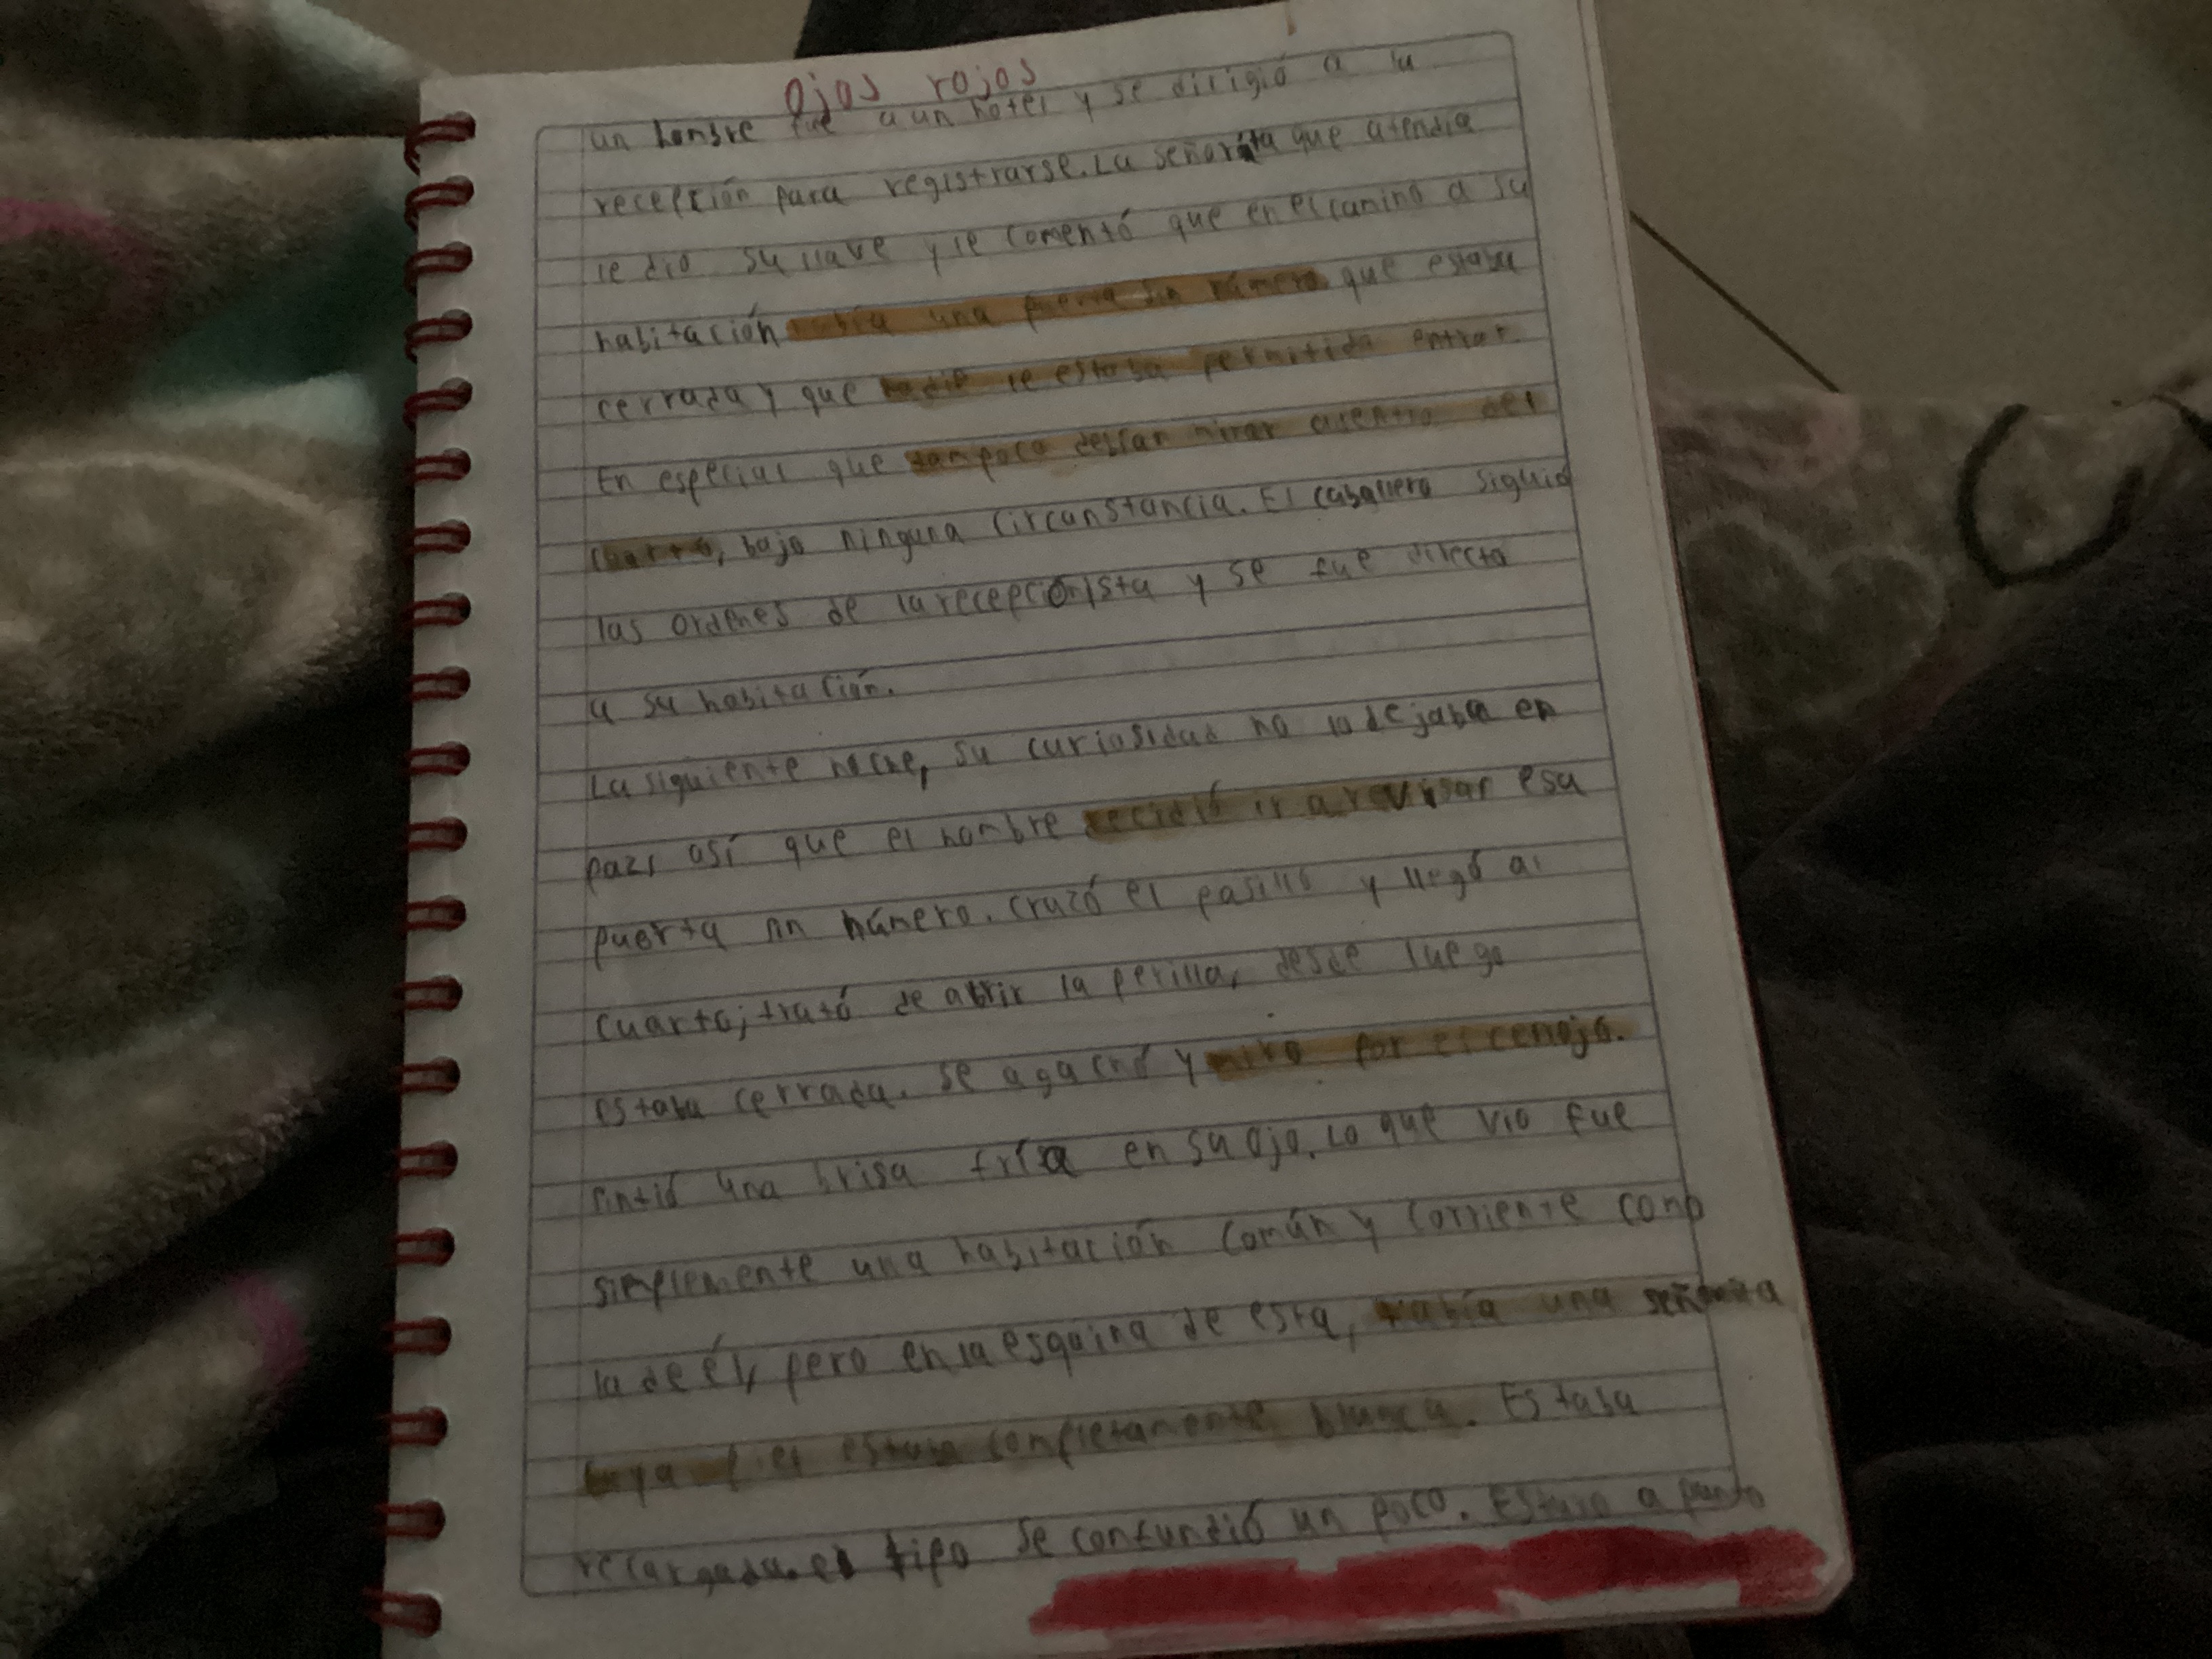 Ojos rojos
un hombre fue a un hotel y se dirigió a la
recepción para registrarse. La señorita que atendía
le dio su llave y le comentó que en el camino a su
habitación había una puerta sin número que estaba
cerrada y que nadie le estaba permitida entrar.
En especial que tampoco debían mirar adentro del
cuarto, bajo ninguna circunstancia. El caballero siguió
las ordenes de la recepcionista y se fue directo
a su habitación.
La siguiente noche, su curiosidad no lo dejaba en
paz, así que el hombre decidió ir a revisar esa
puerta sin número. cruzó el pasillo y llegó al
cuarto; trató de abrir la perilla, desde luego
estaba cerrada. Se agachó y miró por el cerrojo.
sintió una brisa fría en su ojo. Lo que vio fue
simplemente una habitación común y corriente como
la de él, pero en la esquina de esta, había una señorita
cuya piel estaba completamente blanca. Estaba
recargada. el tipo se confundió un poco. Estuvo a punto